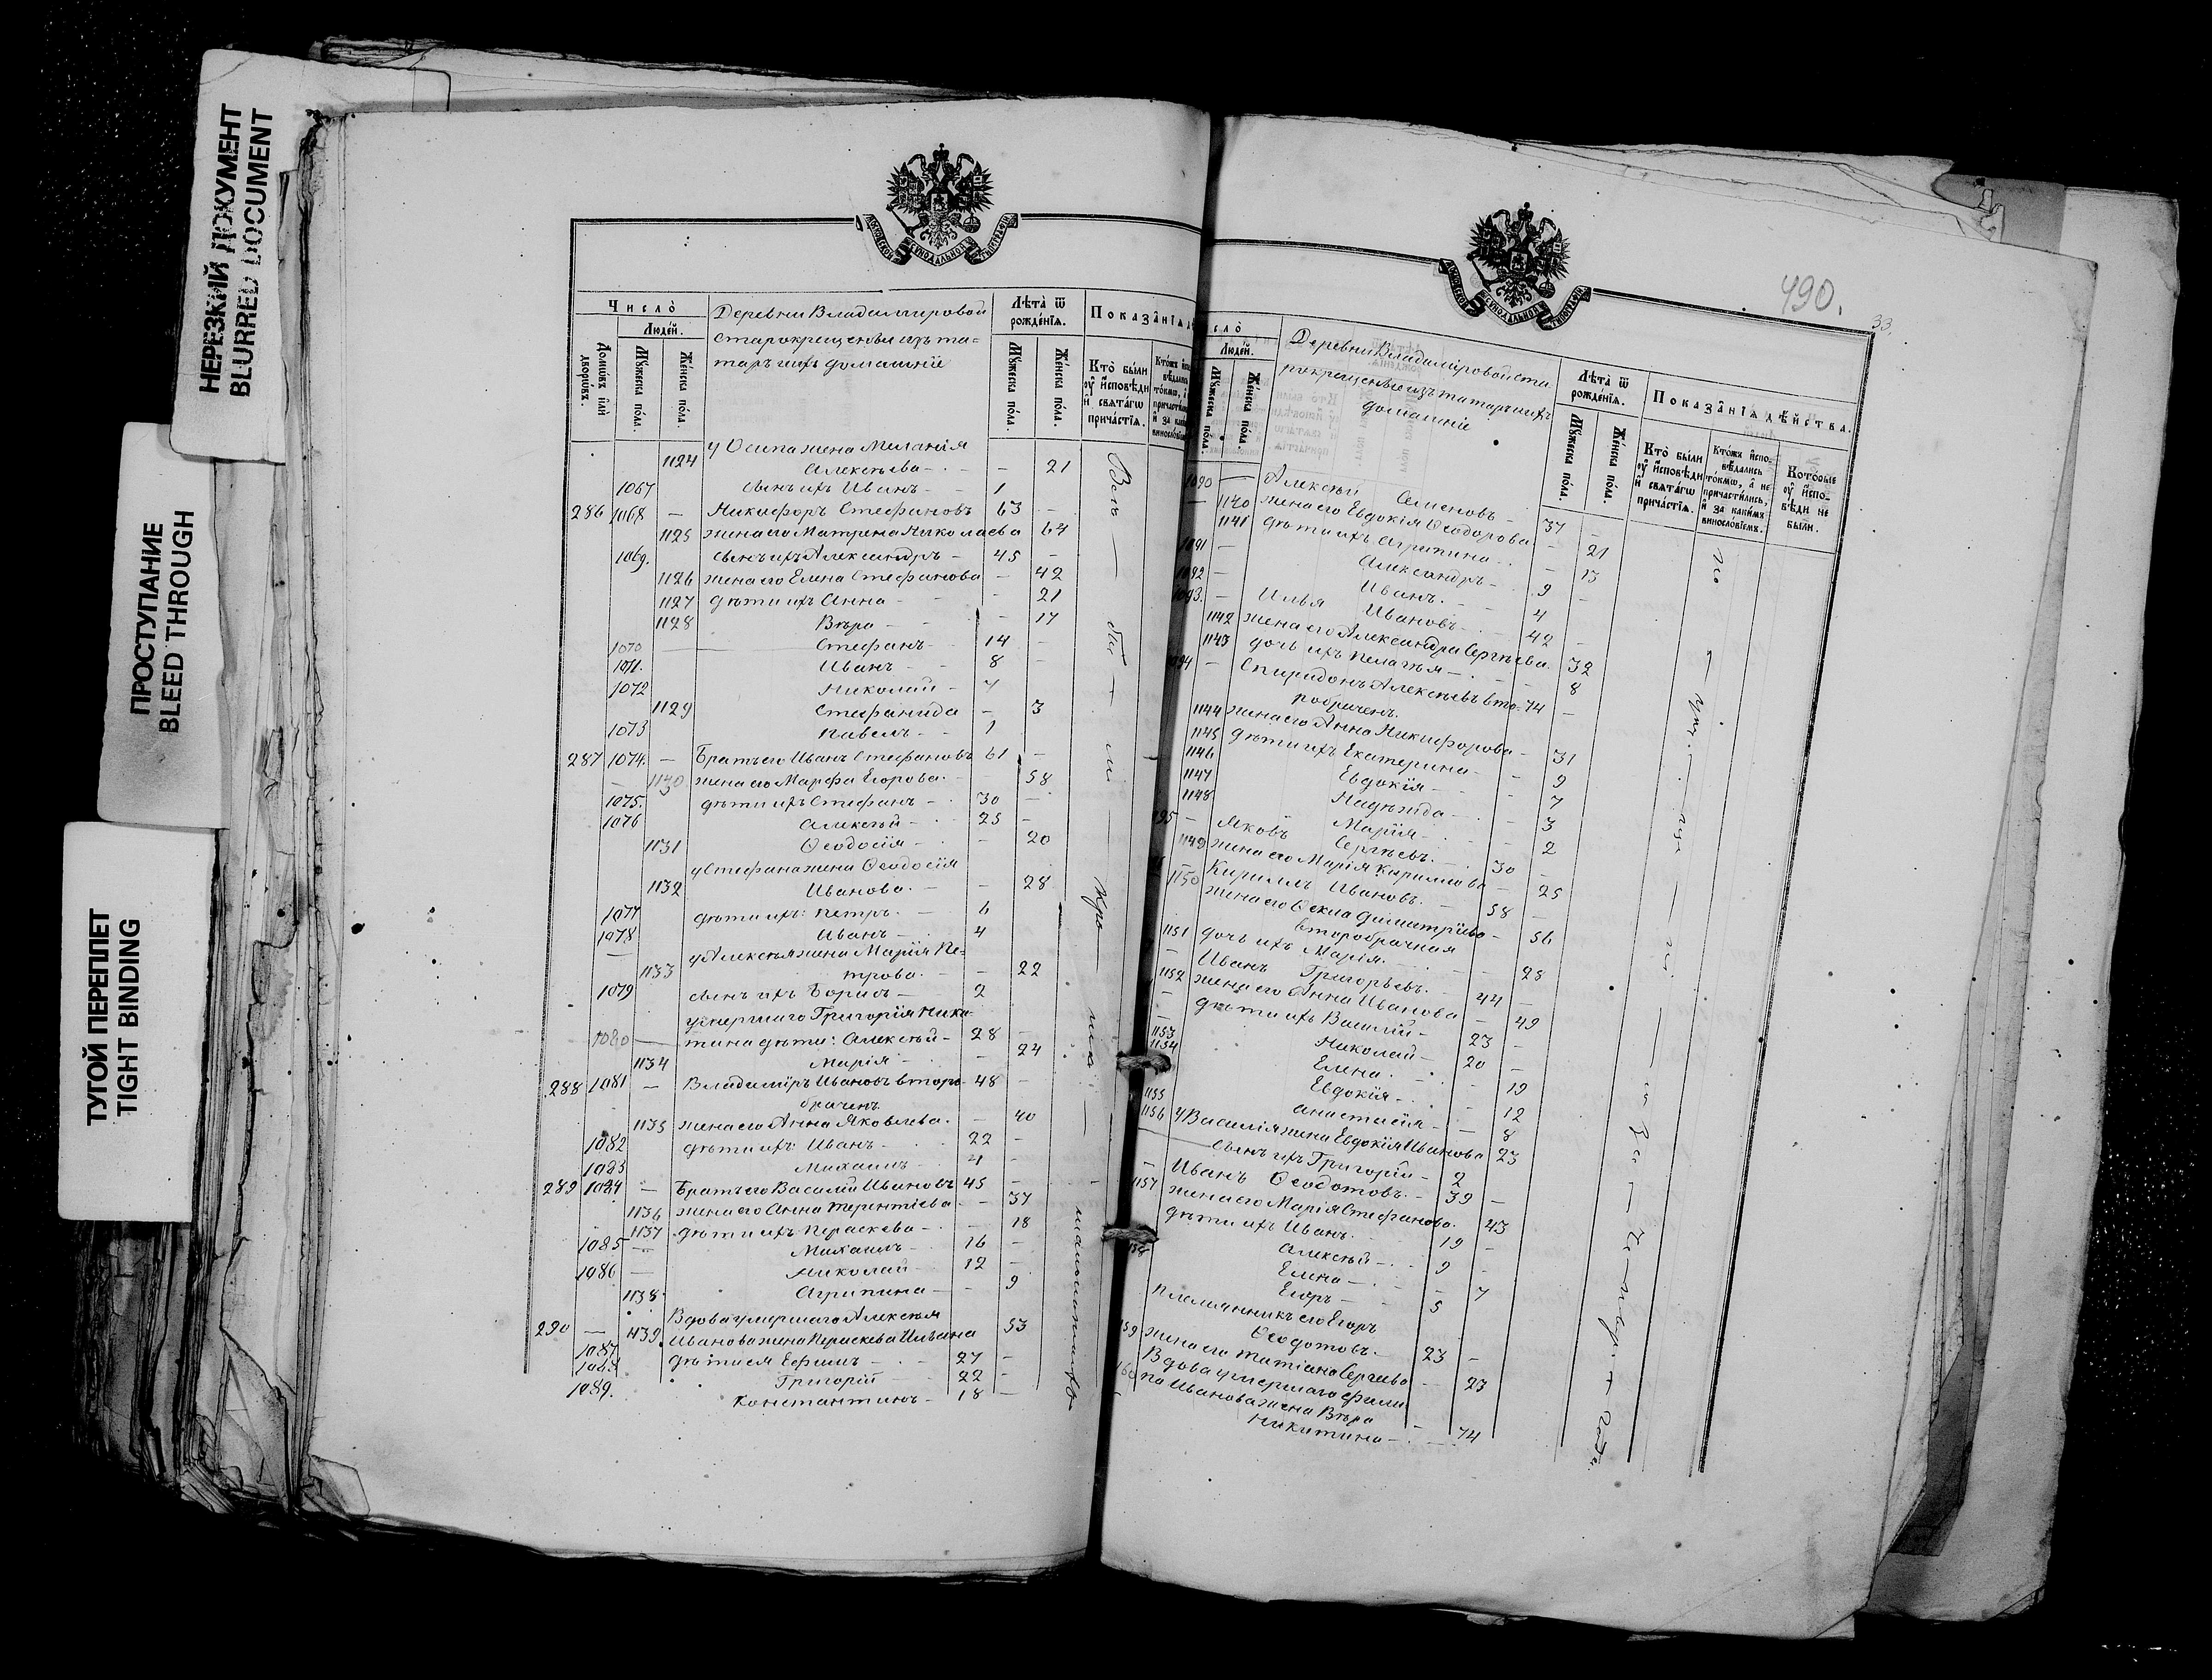 НЕРЕЗКИЙ ДОКУМЕНТ
BLURRED DOCUMENT
ПРОСТУПАНИЕ
BLEED THROUGH
ТУГОЙ ПЕРЕПЛЕТ
TIGHT BINDING
МОСКОВСКОЙ СѴНОДАЛЬНОЙ ТѴПОГРАФІИ
Число̀
Людей.
Домѡвъ и҆лѝ дворѡвъ.
Мꙋжеска пола.
Женска пола.
Деревни Владимировой
старокрещены изъ та=
таръ и ихъ домашніе
Лѣта̀ ѿ рожденїѧ.
Мꙋжеска пола.
Женска пола.
Показанїѧ
Кто̀ были ᲂу҆ и҆сповѣди и҆ свѧтагѡ причастїѧ.
у Осипа жена Меланія
1124 Алексѣева — — 21
1067 сынъ ихъ Иванъ — 1
286 1068 — Никифоръ Стефановъ 63 —
1125 жена его Матрена Николаева 64
1069. сынъ ихъ Александръ — 45 —
1126 жена его Елена Стефанова — 42
1127 дѣти ихъ Анна — — 21
1128 Вѣра — — 17
1070 — Стефанъ — 14 —
1071. Иванъ — 8 —
1072 Николай — 7
1129 Стефанида — 3
1073 Павелъ — 1
287 1074. — Братъ его Иванъ Стефановъ 61 —
— 1130 жена его Марфа Егорова. — 58
1075. дѣти ихъ Стефанъ — 30 —
1076 Алексѣй — 25 —
1131 Ѳеодосія — — 20
у Стефана жена Ѳеодосія
1132 Иванова. — — 28
1077 дѣти ихъ: Петръ. — 6
1078 Иванъ — 4
— у Алексѣя жена Марія Пе=
1133 трова. — — 22
1079 сынъ ихъ Борисъ — 2
умершаго Григорія Ники=
1080 — тина дѣти: Алексѣй — 28 —
1134 Марія — — 24
288 1081 — Владиміръ Ивановъ второ- 48 —
браченъ.
1135 жена его Анна Яковлева. — 40
1082 дѣти ихъ Иванъ — 22 —
1083 Михаилъ — 4 —
289 1084 — Братъ его Василій Ивановъ 45 —
1136 жена его Анна Терентіева — 37
1137 дѣти ихъ Параскева — — 18
1085 — Михаилъ — 16 —
1086 — Николай — 12 —
1138 Агрипина — — 9
Вдова умершаго Алексѣя
290 — 1139. Иванова жена Параскева Ильина 53
1087 дѣти ея Ефимъ — 27 —
1088 Григорій — 22 —
1089. Константинъ — 18 —
490.
33.
МОСКОВСКОЙ СѴНОДАЛЬНОЙ ТѴПОГРАФІИ
Людей.
Мꙋжеска пола.
Женска пола.
Деревни Владиміровой ста
рокрещены изъ татаръ и ихъ
домашніе
Лѣта̀ ѿ рожденїѧ.
Мꙋжеска пола.
Женска пола.
Показанїѧ дѣйства.
Кто̀ были ᲂу҆ и҆сповѣди и҆ свѧтагѡ причастїѧ.
Кто́жъ и҆сповѣдались то́кмѡ, а҆ не причастились, и҆ за какимъ винословїемъ.
Которые ᲂу҆ и҆сповѣди не были.
1090 — Алексѣй Семеновъ — 37 —
— 1140 жена его Евдокія Ѳеодорова. — 21
1141 дѣти ихъ Агрипина — 13
1091 — Александръ — 9 —
1092 — Иванъ. — 4
1093. — Илья Ивановъ — 42 —
1142 жена его Александра Сергѣева. 32
1143 дочь ихъ Пелагея — 8
1094 — Спиридонъ Алексѣевъ вто- 74 —
робраченъ.
1144 жена его Анна Никифорова — 31
1145 дѣти ихъ Екатерина — — 9
1146 Евдокія — — 7
1147 Надежда — — 3
1148 Марія — — 2
1095 — Яковъ Сергѣевъ. — 30 —
1149 жена его Марія Кирилова — 25
Кириллъ Ивановъ. — 58 —
1150 жена его Ѳекла Димитріева — 56
второбрачная
1151 дочь ихъ Марія. — — 28
— Иванъ Григорьевъ. — 44 —
1152 жена его Анна Иванова — 49
— дѣти ихъ Василій — 23 —
— Николай — 20 —
1153 Елена — — 19
1154 Евдокія — — 12
1155 Анастасія — — 8
1156 у Василія жена Евдокія Иванова 23
— сынъ ихъ Григорій — 2
— Иванъ Ѳеодотовъ. — 39 —
1157 жена его Марія Стефанова. 43
дѣти ихъ Иванъ. — 19 —
Алексѣй — 9 —
1158 Елена — — 7
Егоръ — 5
племянникъ его Егоръ
Ѳеодотовъ. — 23 —
1159 жена его Татіана Сергеева — 23
Вдова умершаго Фили
1160 па Иванова жена Вѣра
Никитина — — 74